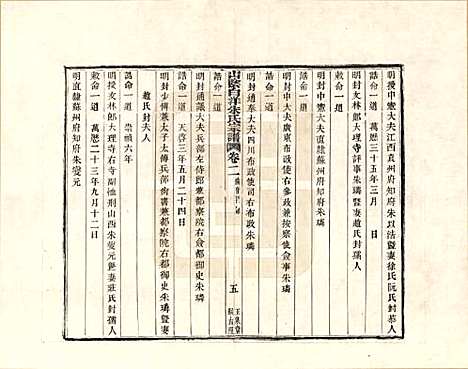 明授中憲大夫江西袁州府知府朱以法暨妻徐氏阮氏封恭人
誥命一道 萬曆三十五年三月 日
明封文林郎大理寺評事朱璘暨妻趙氏封孺人
明封中憲大夫直隸蘇州府知府朱璘
明封中大夫廣東布政使司右參政兼按察使僉事朱璘
誥命一道
明封通奉大夫四川布政使司右布政朱璘
誥命一道
山陰白洋朱氏宗譜 卷二
五
玉泉堂
明封通議大夫兵部左侍郎兼都察院右僉都御史朱璘
誥命一道 天啓三年五月二十四日
明封少傅兼太子太傅兵部尚書兼都察院右都御史朱璘暨妻
趙氏封夫人
誥命一道 崇禎六年
明授文林郎大理寺右寺副推刑山西朱燮元暨妻莊氏封孺人
敕命一道 萬曆二十三年九月十二日
明直隸蘇州府知府朱燮元